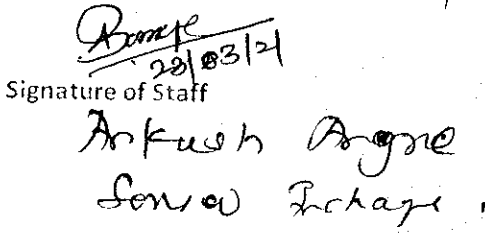 23/03/21
Signature of Staff
Ankush Angne
Incharge